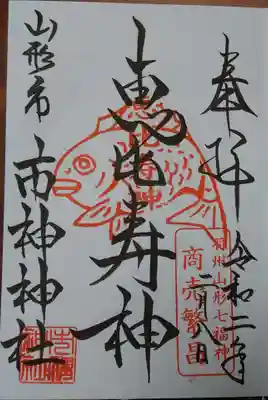 奉拝
令和二年
二月八日
羽州山形七福神
商売繁昌
恵比寿神
山形市
市神神社